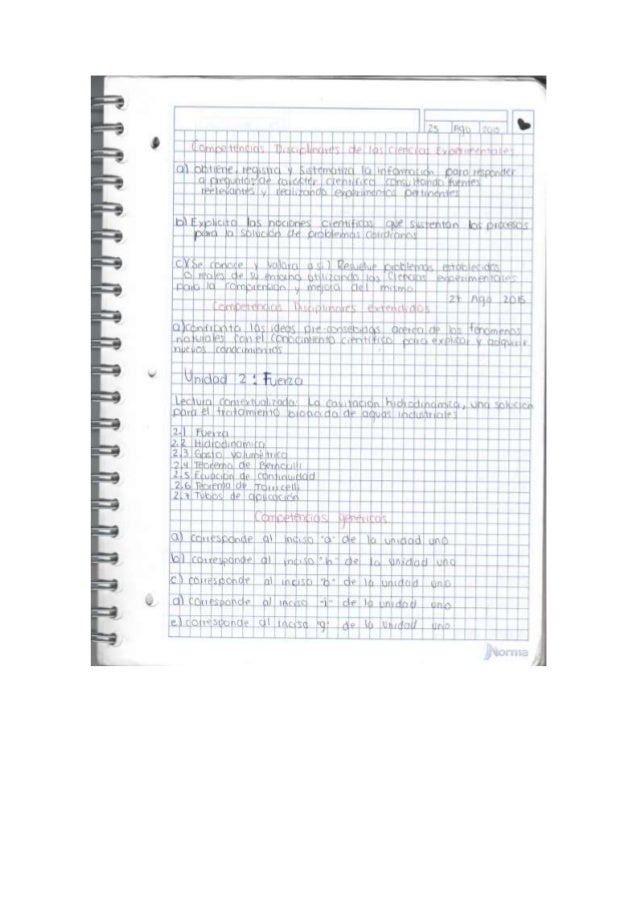 25 Ago 2015
Competencias Disciplinares de las Ciencias Experimentales
a) obtiene, registra y sistematiza la información para responder
a preguntas de carácter científico consultando fuentes
relevantes y realizando experimentos pertinentes
b) Explicita las nociones científicas que sustentan los procesos
para la solución de problemas cotidianos
c) Se conoce y valora a si) Resuelve problemas establecidos
o reales de su entorno utilizando las ciencias experimentales
para la comprension y mejora del mismo
Ago 2015
Competencias Disciplinares extendidas
a) confronta las ideas pre-consebidas acerca de los fenomenos
naturales con el conocimiento científico para explicar y adquirir
nuevos conocimientos
Unidad 2: Fuerza
Lectura contextualizada: La cavitación hidrodinamica, una solucion
para el tratamiento de aguas industriales
2.1 Fuerza
2.2 Hidrodinamica
2.3 Gasto volumetrico
2.4 Teorema de Bernoulli
2.5 Ecuación de continuidad
2.6 Teorema de Torricelli
2.7 Tubos de aplicación
Competencias genericas
a) corresponde al inciso "a" de la unidad uno
b) corresponde al inciso "h" de la unidad uno
c) corresponde al inciso "b" de la unidad uno
d) corresponde al inciso "i" de la unidad uno
e) corresponde al inciso "g" de la unidad uno
Norma